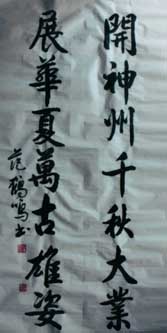 開神州千秋大業
展華夏萬古雄姿
范鶴鳴书